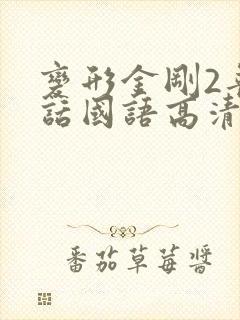 變形金剛2普
話國語高清
番茄草莓醬